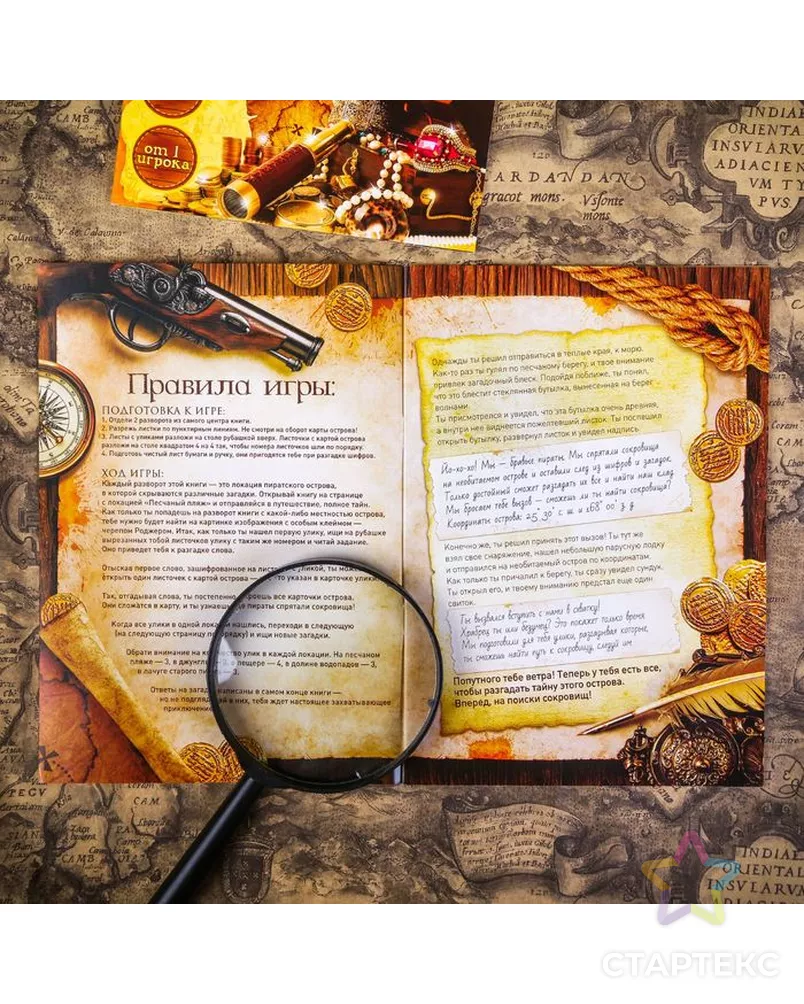 от 1
игрока
DARDANDAN
gracot mons.
Vsfonte
mons
INDIAE
ORIENTAL
INSVLARVM
ADIACIEN
VM TY
PVS.
Правила игры:
ПОДГОТОВКА К ИГРЕ:
1. Отдели 2 разворота из самого центра книги.
2. Разрежь листки по пунктирным линиям. Не смотри на оборот карты острова!
3. Листы с уликами разложи на столе рубашкой вверх. Листочки с картой острова
разложи на столе квадратом 4 на 4 так, чтобы номера листочков шли по порядку.
4. Подготовь чистый лист бумаги и ручку, они пригодятся тебе при разгадке шифров.
ХОД ИГРЫ:
Каждый разворот этой книги — это локация пиратского острова,
в которой скрываются различные загадки. Открывай книгу на странице
с локацией «Песчаный пляж» и отправляйся в путешествие, полное тайн.
Как только ты попадешь на разворот книги с какой-либо местностью острова,
тебе нужно будет найти на картинке изображения с особым клеймом —
черепом Роджером. Итак, как только ты нашел первую улику, ищи на рубашке
вырезанных тобой листочков улику с таким же номером и читай задание.
Оно приведет тебя к разгадке слова.
Отыскав первое слово, зашифрованное на листы уликой, ты може
открыть один листочек с картой острова — то указан в карточке улики
Так, отгадывая слова, ты постепенно роешь все карточки острова.
Они сложатся в карту, и ты узнаешь де пираты спрятали сокровища!
Когда все улики в одной локации нашлись, переходи в следующую
(на следующую страницу по порядку) и ищи новые загадки.
Обрати внимание на количество улик в каждой локации. На песчаном
пляже — 3, в джунглях пещере — 4, в долине водопадов — 3,
в лачуге старого — 3.
Ответы на загадки написаны в самом конце книги —
но не подглядывай в них, тебя ждет настоящее захватывающее
приключение
Однажды ты решил отправиться в теплые края, к морю.
Как-то раз ты гулял по песчаному берегу, и твое внимание
привлек загадочный блеск. Подойдя поближе, ты понял,
что это блестит стеклянная бутылка, вынесенная на берег
волнами
Ты присмотрелся и увидел, что эта бутылка очень древняя,
а внутри нее виднеется пожелтевший листок. Ты поспешил
открыть бутылку, развернул листок и увидел надпись
Йо-хо-хо! Мы — бравые пираты. Мы спрятали сокровища
на необитаемом острове и оставили след из шифров и загадок.
Только достойный сможет разгадать их все и найти наш клад
Мы бросаем тебе вызов — сможешь ли ты найти сокровища?
Координаты острова: 25° 30' с. ш. и 168° 00' з. д.
Конечно же, ты решил принять этот вызов! Ты тут же
взял свое снаряжение, нашел небольшую парусную лодку
и отправился на необитаемый остров по координатам.
Как только ты причалил к берегу, ты сразу увидел сундук.
Ты открыл его, и твоему вниманию предстал еще один
свиток.
Ты вызвался вступить с нами в схватку!
Храбрец ты или безумец? Это покажет только время
Мы подготовили для тебя улики, разгадывая которые,
ты сможешь найти путь к сокровищу, следуй им
Попутного тебе ветра! Теперь у тебя есть все,
чтобы разгадать тайну этого острова.
Вперед, на поиски сокровищ!
PEGV
CAM
INDIAE
ORIENTAL
INSVLARVM
СТАРТЕКС